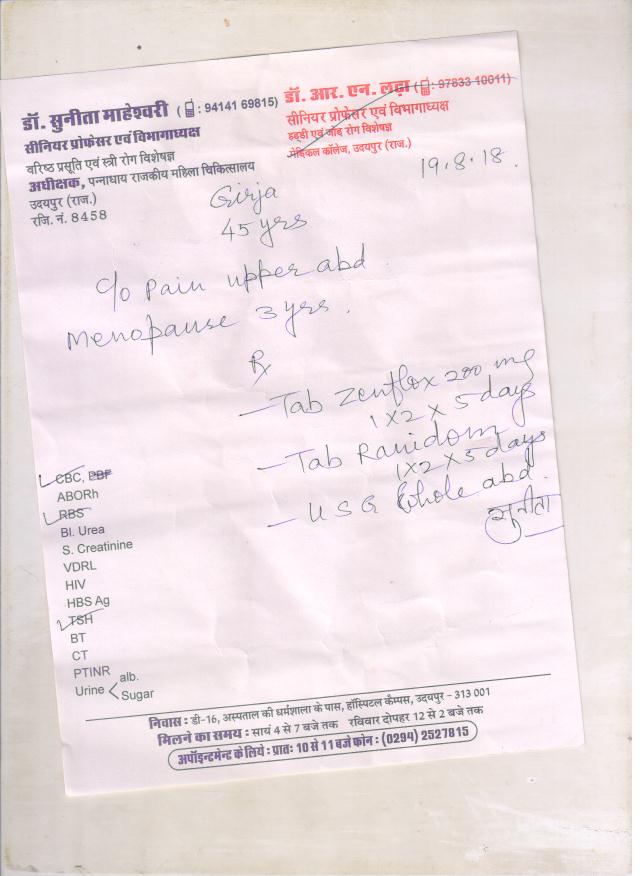 डॉ. सुनीता माहेश्वरी (: 94141 69815)
सीनियर प्रोफेसर एवं विभागाध्यक्ष
वरिष्ठ प्रसूति एवं स्त्री रोग विशेषज्ञ
अधीक्षक, पन्नाधाय राजकीय महिला चिकित्सालय
उदयपुर (राज.)
रजि. नं. 8458
डॉ. आर. एन. लढ़ा (: 97833 10011)
सीनियर प्रोफेसर एवं विभागाध्यक्ष
हड्डी एवं जोड़ रोग विशेषज्ञ
मेडिकल कॉलेज, उदयपुर (राज.)
19.8.18.
Girja
45 yrs
C/o Pain upper abd.
Menopause 3 yrs.
Rx
- Tab Zenflox 200 mg
1 X 2 X 5 days
- Tab Ranidom
1 X 2 X 5 days
- USG Whole abd.
सुनीता
CBC, PBF
ABORh
RBS
Bl. Urea
S. Creatinine
VDRL
HIV
HBS Ag
TSH
BT
CT
PTINR
Urine < alb.
Sugar
निवास : डी-16, अस्पताल की धर्मशाला के पास, हॉस्पिटल कैम्पस, उदयपुर - 313 001
मिलने का समय : सायं 4 से 7 बजे तक रविवार दोपहर 12 से 2 बजे तक
अपॉइन्टमेन्ट के लिये : प्रातः 10 से 11 बजे फोन : (0294) 2527815